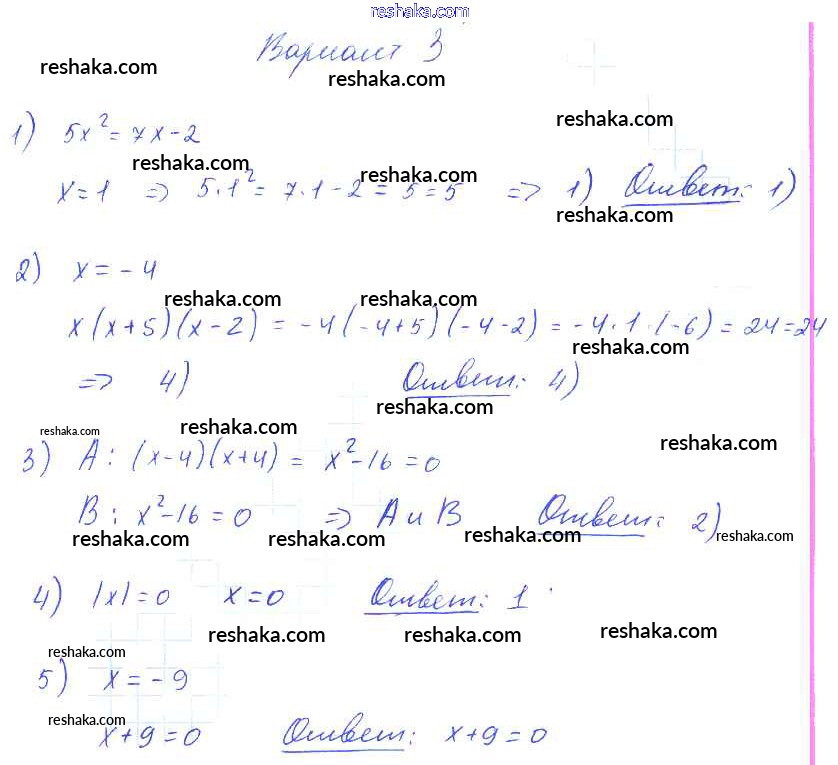 reshaka.com
Вариант 3
reshaka.com reshaka.com
1) 5x² = 7x - 2
reshaka.com reshaka.com reshaka.com
x = 1 => 5·1² = 7·1 - 2 = 5 = 5 => 1) Ответ: 1)
reshaka.com
2) x = -4
reshaka.com reshaka.com
x(x+5)(x-2) = -4(-4+5)(-4-2) = -4·1·(-6) = 24 = 24
reshaka.com
=> 4) Ответ: 4)
reshaka.com
reshaka.com reshaka.com reshaka.com
3) A: (x-4)(x+4) = x²-16 = 0
B: x²-16 = 0 => A и B Ответ: 2)
reshaka.com reshaka.com reshaka.com reshaka.com
4) |x| = 0 x = 0 Ответ: 1
reshaka.com reshaka.com reshaka.com
reshaka.com
5) x = -9
reshaka.com
x+9 = 0 Ответ: x+9 = 0